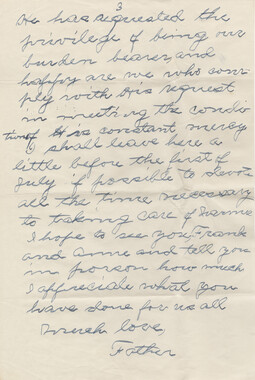 3
He has requested the
privilege of being our
burden bearer, and
happy are we who com-
ply with His request
in meeting the condi-
tions of His constant mercy
I shall leave here a
little before the first of
July if possible to devote
all the time necessary
to taking care of
I hope to see you, Frank
and Anne and tell you
in person how much
I appreciate what you
have done for us all
Much love,
Father